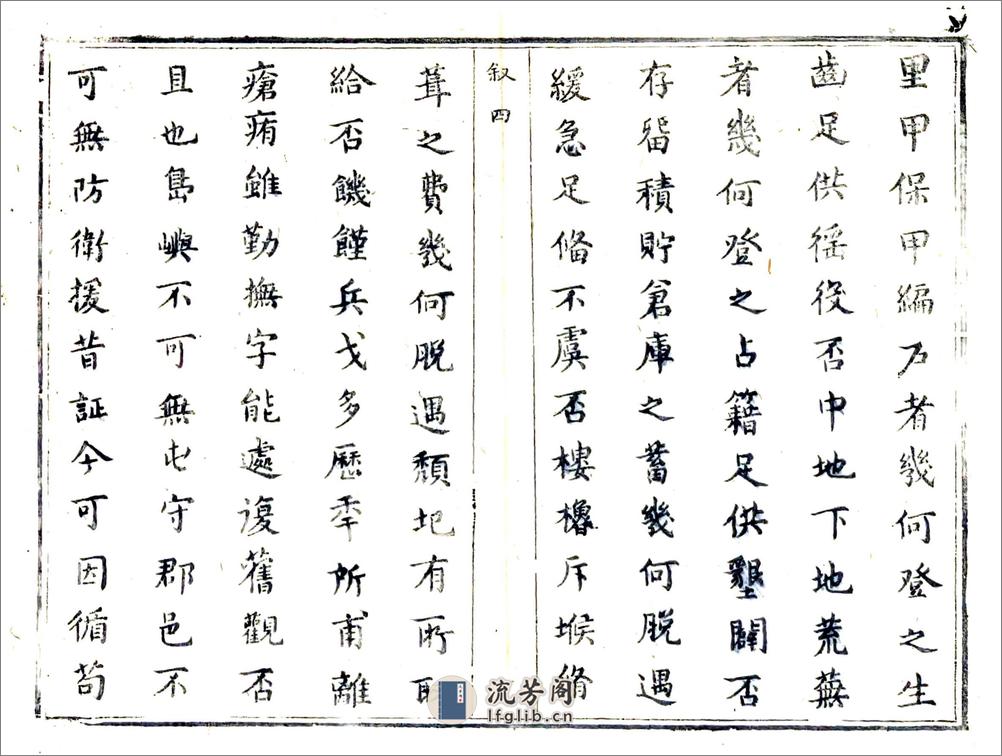 里甲保甲編戶者幾何登之生
齒足供徭役否中地下地荒蕪
者幾何登之占籍足供墾闢否
存留積貯倉庫之蓄幾何脱遇
緩急足俻不虞否樓櫓斥堠繕
叙四
葺之費幾何脱遇頽圮有所取
給否饑饉兵戈多歷年所甫離
瘡痏雖勤撫字能處復舊觀否
且也島嶼不可無屯守郡邑不
可無防衛援昔証今可因循苟
流芳阁
lfglib.cn